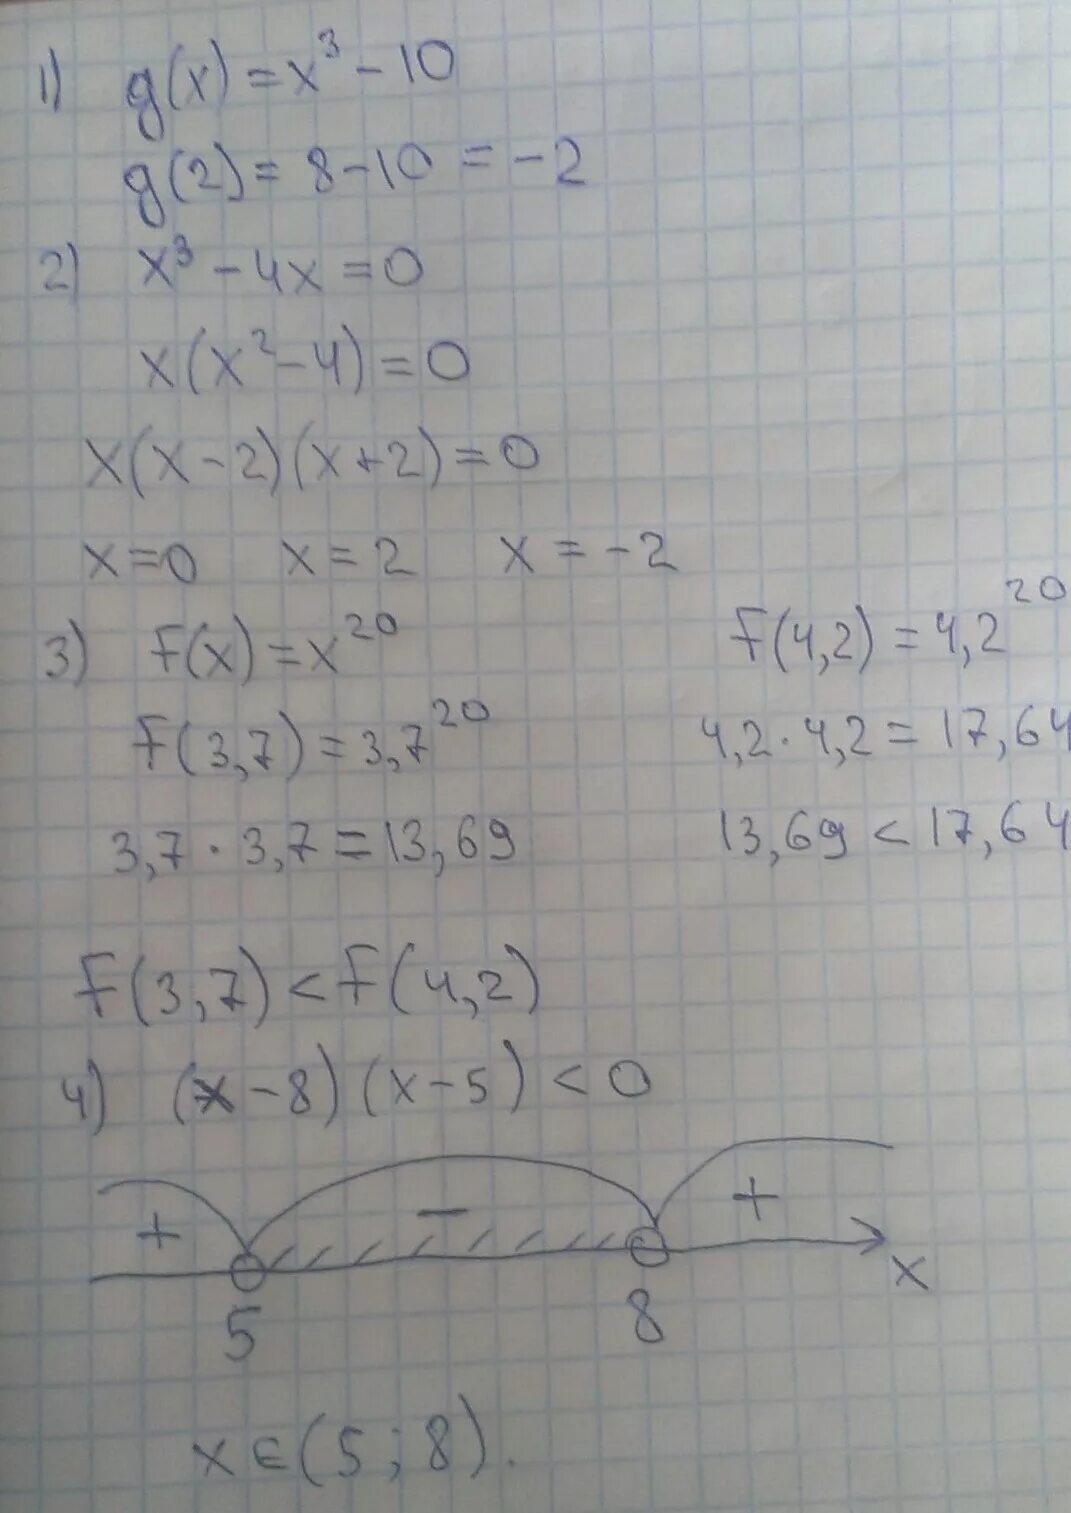 1) g(x) = x³ - 10
g(2) = 8 - 10 = -2
2) x³ - 4x = 0
x(x² - 4) = 0
x(x - 2)(x + 2) = 0
x = 0 x = 2 x = -2
3) F(x) = x²⁰
F(3,7) = 3,7²⁰
3,7 · 3,7 = 13,69
F(4,2) = 4,2²⁰
4,2 · 4,2 = 17,64
13,69 < 17,64
F(3,7) < F(4,2)
4) (x - 8)(x - 5) < 0
+ - +
5 8 x
x ∈ (5; 8).